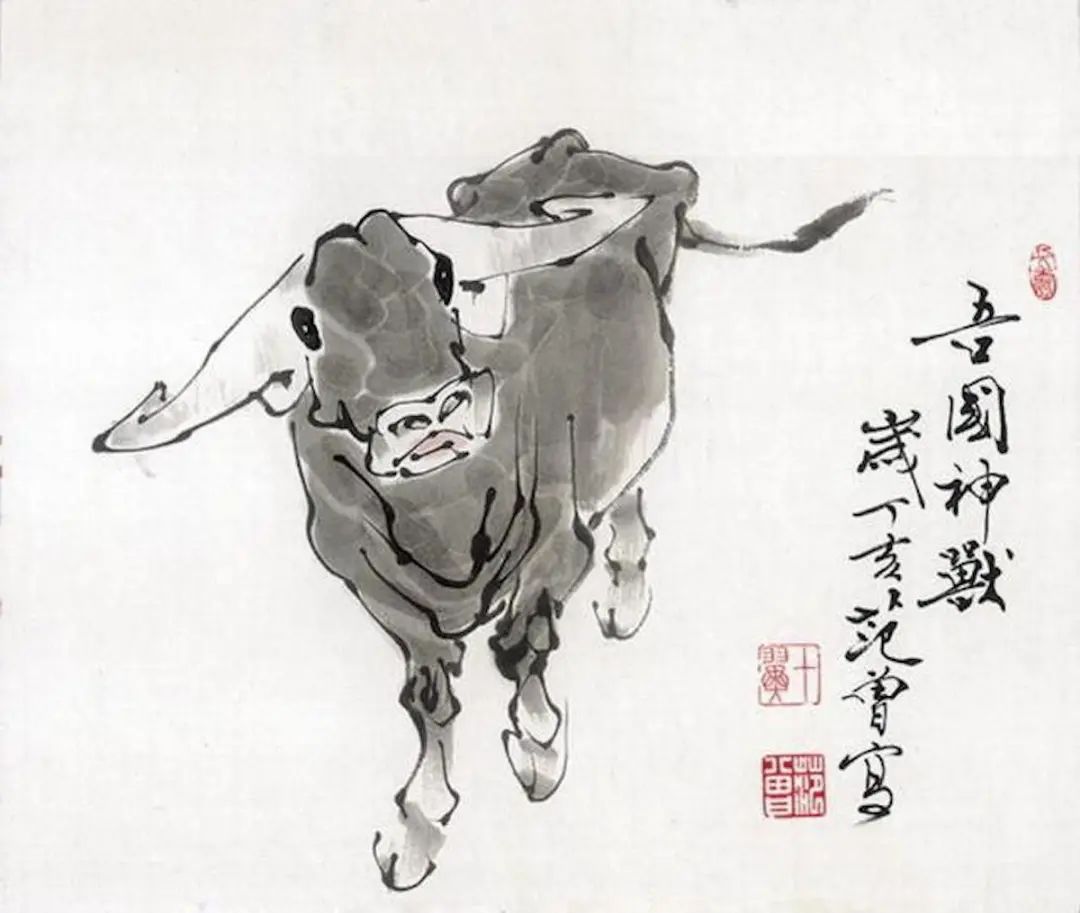 吾國神獸
歲丁亥范曾寫